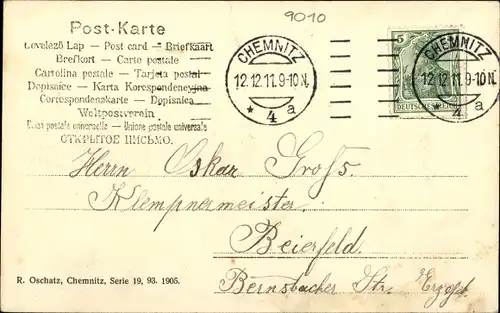 9010
Post-Karte
Levelező Lap — Post card — Briefkaart
Brefkort — Carte postale
Cartolina postale — Tarjeta postal
Dopisnice — Karta Korespondencyjna
Correspondenzkarte — Dopisnica
Weltpostverein
Union postale universelle — Unione postale universale
ОТКРЫТОЕ ПИСЬМО.
CHEMNITZ
12.12.11.9-10N.
* 4 a
5
DEUTSCHES REICH
CHEMNITZ
12.12.11.9-10N.
* 4 a
Herrn Oskar Groß.
Klempnermeister
Beierfeld.
Bernsbacher Str. Erzgeb.
R. Oschatz, Chemnitz, Serie 19, 93. 1905.